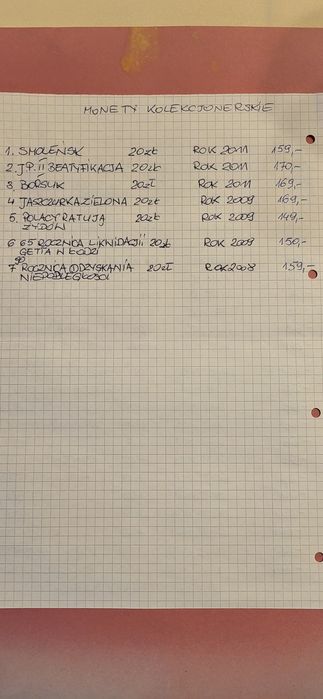 MONETY KOLEKCJONERSKIE
1. SMOLEŃSK 20zł ROK 2011 159,-
2. J.P. II BEATYFIKACJA 20zł ROK 2011 170,-
3. BORSUK 20zł ROK 2011 169,-
4 JASZCZURKA ZIELONA 20zł ROK 2009 169,-
5. POLACY RATUJĄ 20zł ROK 2009 149,-
ŻYDÓW
6 65 ROCZNICA LIKWIDACJI 20zł ROK 2009 150,-
GETTA W ŁODZI
90
7 ROCZNICA ODZYSKANIA 20zł ROK 2008 159,-
NIEPODLEGŁOŚCI